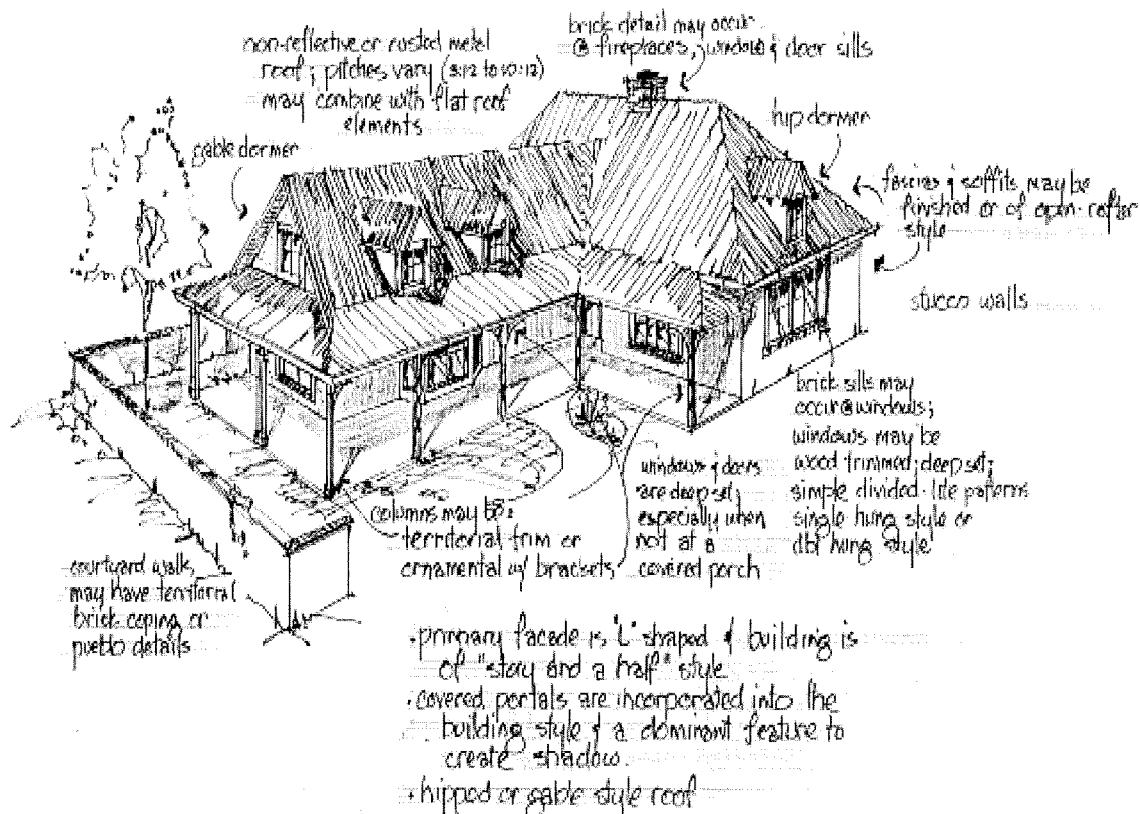 brick detail may occur
@ fireplaces, window & door sills
non-reflective or rusted metal
roof; pitches vary (8:12 to 10:12)
may combine with flat roof
elements
gable dormer
hip dormer
fascias & soffits may be
finished or of open-rafter
style
stucco walls
brick sills may
occur @ windows;
windows may be
wood trimmed; deep set;
simple divided-lite paterns
single hung style or
dbl hung style
windows & doors
are deep set;
especially when
not at a
covered porch
columns may be:
territorial trim or
ornamental w/ brackets
courtyard walls,
may have territorial
brick coping or
pueblo details
• primary facade is "L" shaped & building is
of "story and a half" style
• covered portals are incorporated into the
building style & a dominant feature to
create shadow.
• hipped or gable style roof